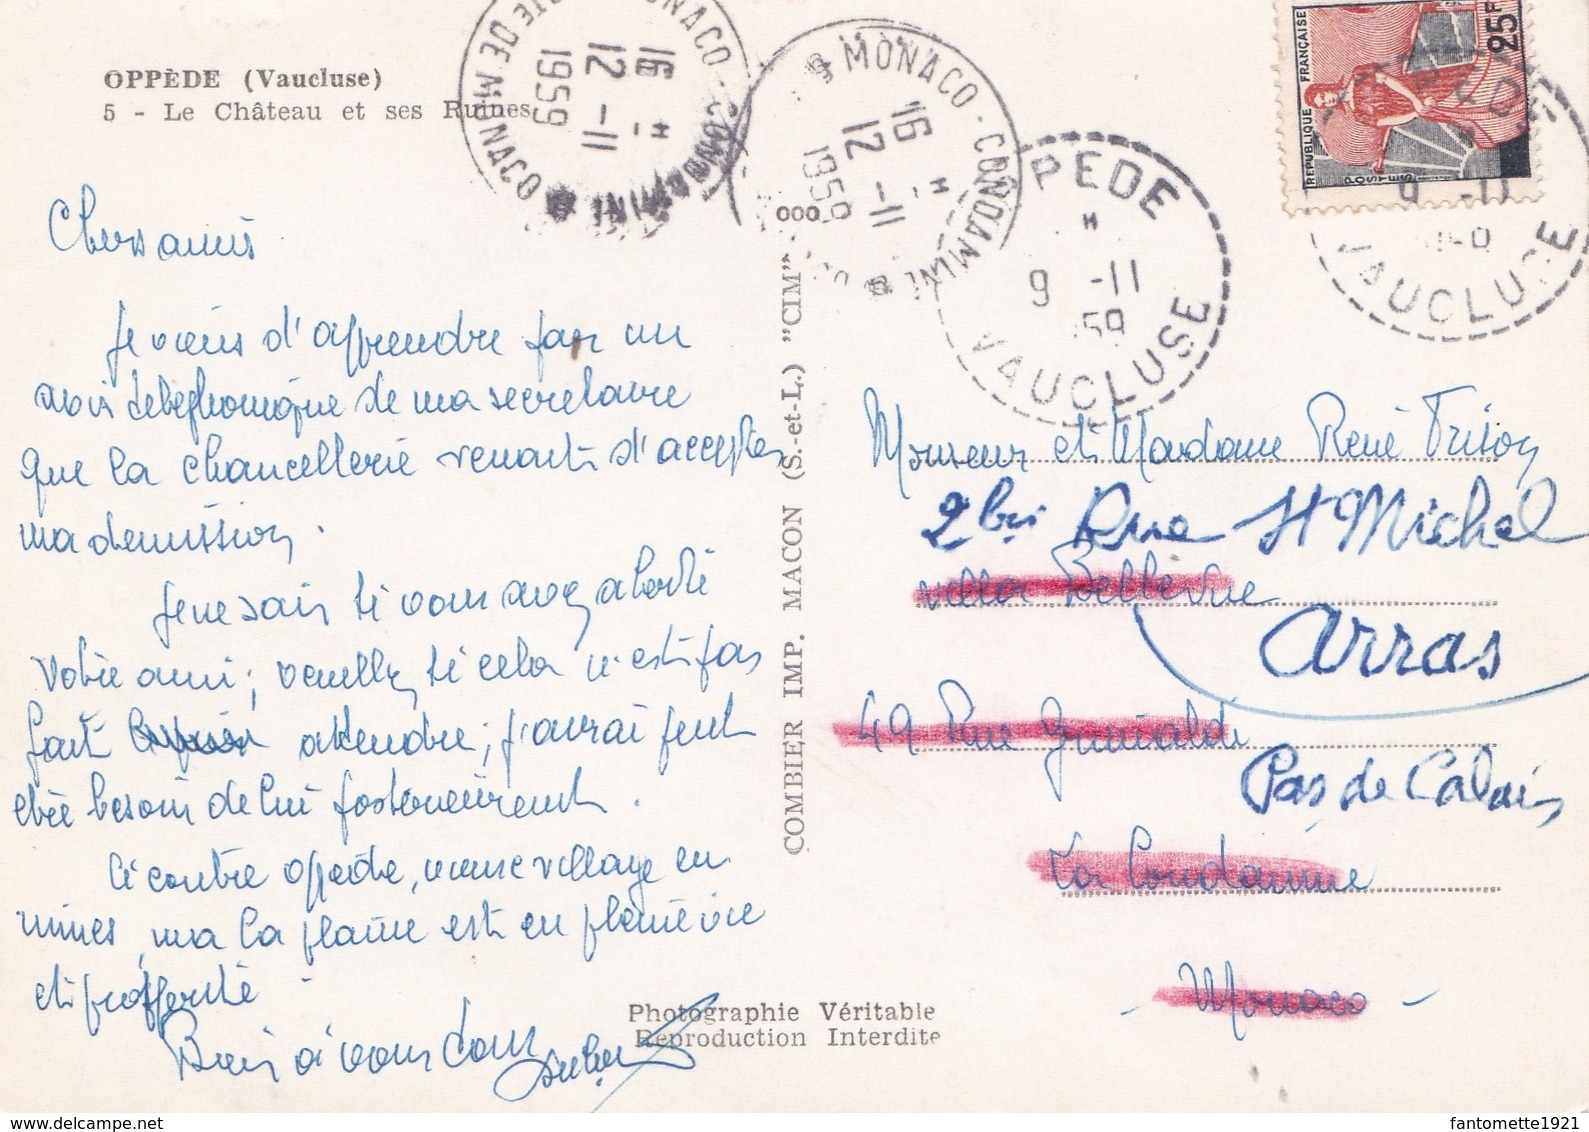 OPPÈDE (Vaucluse)
5 - Le Château et ses Ruines
MONACO - CONDAMINE
16 H
12 -11
1959
PTE DE MONACO
MONACO - CONDAMINE
16 H
12 -11
1959
PEDE
H
9 -11
59
VAUCLUSE
REPUBLIQUE FRANÇAISE
25F
POSTES
9 -11
VAUCLUSE
Chers amis
Je viens d'apprendre par un
avis telephonique de ma secretaire
que la chancellerie venait d'accepter
ma demission.
Je ne sais si vous avez alerté
votre ami; veuillez, si cela n'est pas
fait attendre; j'aurai peut
etre besoin de lui posterieurement.
Ci contre Oppede, vieux village en
ruines, ma la plaine est en pleine vie
et prosperité
Bien à vous tous
ooo
COMBIER IMP. MACON (S.-et-L.) "CIM"
Monsieur et Madame René Frison
2 bis Rue St Michel
villa Bellevue
Arras
49 Rue Grimaldi
Pas de Calais
La Condamine
- Monaco -
Photographie Véritable
Reproduction Interdite
fantomette1921